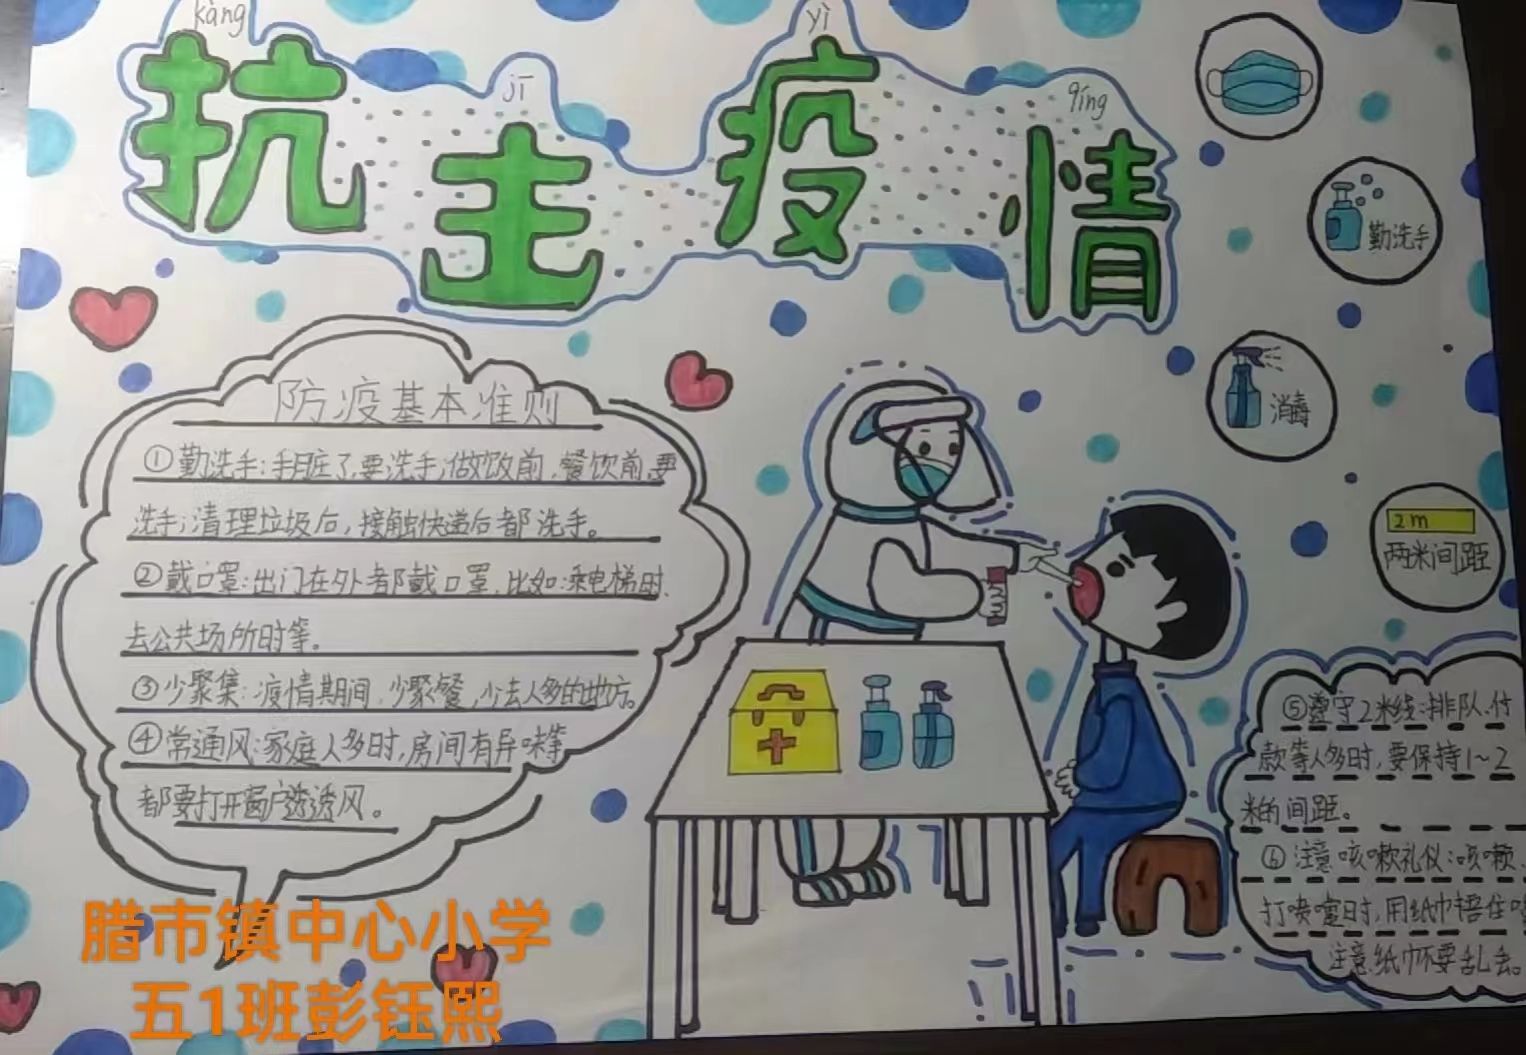 kàng
jī
yì
qíng
抗击疫情
勤洗手
消毒
2m
两米间距
防疫基本准则
①勤洗手:手脏了,要洗手;做饭前、餐饮前要
洗手;清理垃圾后,接触快递后都洗手。
②戴口罩:出门在外都戴口罩,比如:乘电梯时、
去公共场所时等。
③少聚集:疫情期间,少聚餐,少去人多的地方。
④常通风:家庭人多时,房间有异味等
都要打开窗户透透风。
⑤遵守2米线:排队、付
款等人多时,要保持1~2
米的间距。
⑥注意咳嗽礼仪:咳嗽、
打喷嚏时,用纸巾捂住
注意纸巾不要乱丢。
腊市镇中心小学
五1班彭钰熙